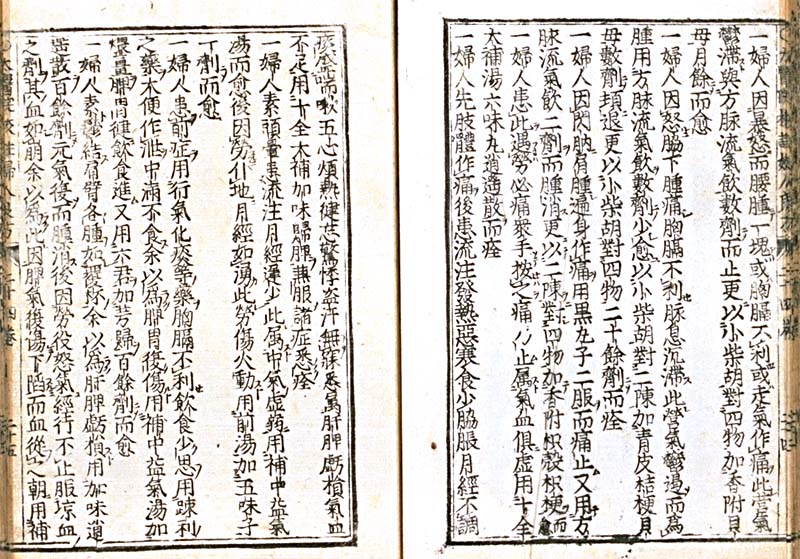 一婦人因暴怒而腰腫一塊或胸膈不利或走氣作痛此榮氣
鬱滯與方脉流氣飲數劑而止更以小柴胡對四物加香附貝
母月餘而愈
一婦人因怒脇下腫痛胸膈不利脉息沉滯此榮氣鬱遏而為
腫用方脉流氣飲數劑少愈以小柴胡對二陳加青皮桔梗貝
母數劑頓退更以小柴胡對四物二十餘劑而痊
一婦人因閃肭肩腫遍身作痛用黑丸子二服而痛止又用方
脉流氣飲二劑而腫消更以二陳對四物加香附枳殼枳梗而
一婦人患此遇勞必痛衆手按之痛乃止属氣血俱虚用十全
大補湯六味丸逍遙散而痊
一婦人先肢體作痛後患流注發熱惡寒食少脇脹月經不調
痰盛喘嗽五心煩熱健忘驚悸盗汗無寐悉属肝脾虧損氣血
不足用十全大補加味歸脾兼服諸症悉痊
一婦人素頭暈患流注月經遲少此属中氣虚弱用補中益氣
湯而愈後因勞仆地月經如湧此勞傷火動用前湯加五味子
一劑而愈
一婦人患前症用行氣化痰等藥胸膈不利飲食少思用疎利
之藥大便作泄中滿不食余以為脾胃復傷用補中益氣湯加
煨薑脾胃健飲食進又用六君加芎歸百餘劑而愈
一婦人素鬱結肩臂各腫如覆杯余以為肝脾虧損用加味逍
遙散百餘劑元氣復而腫消後因勞役怒氣經行不止服凉血
之劑其血如崩余以為此因脾氣復傷下陷而血從之朝用補